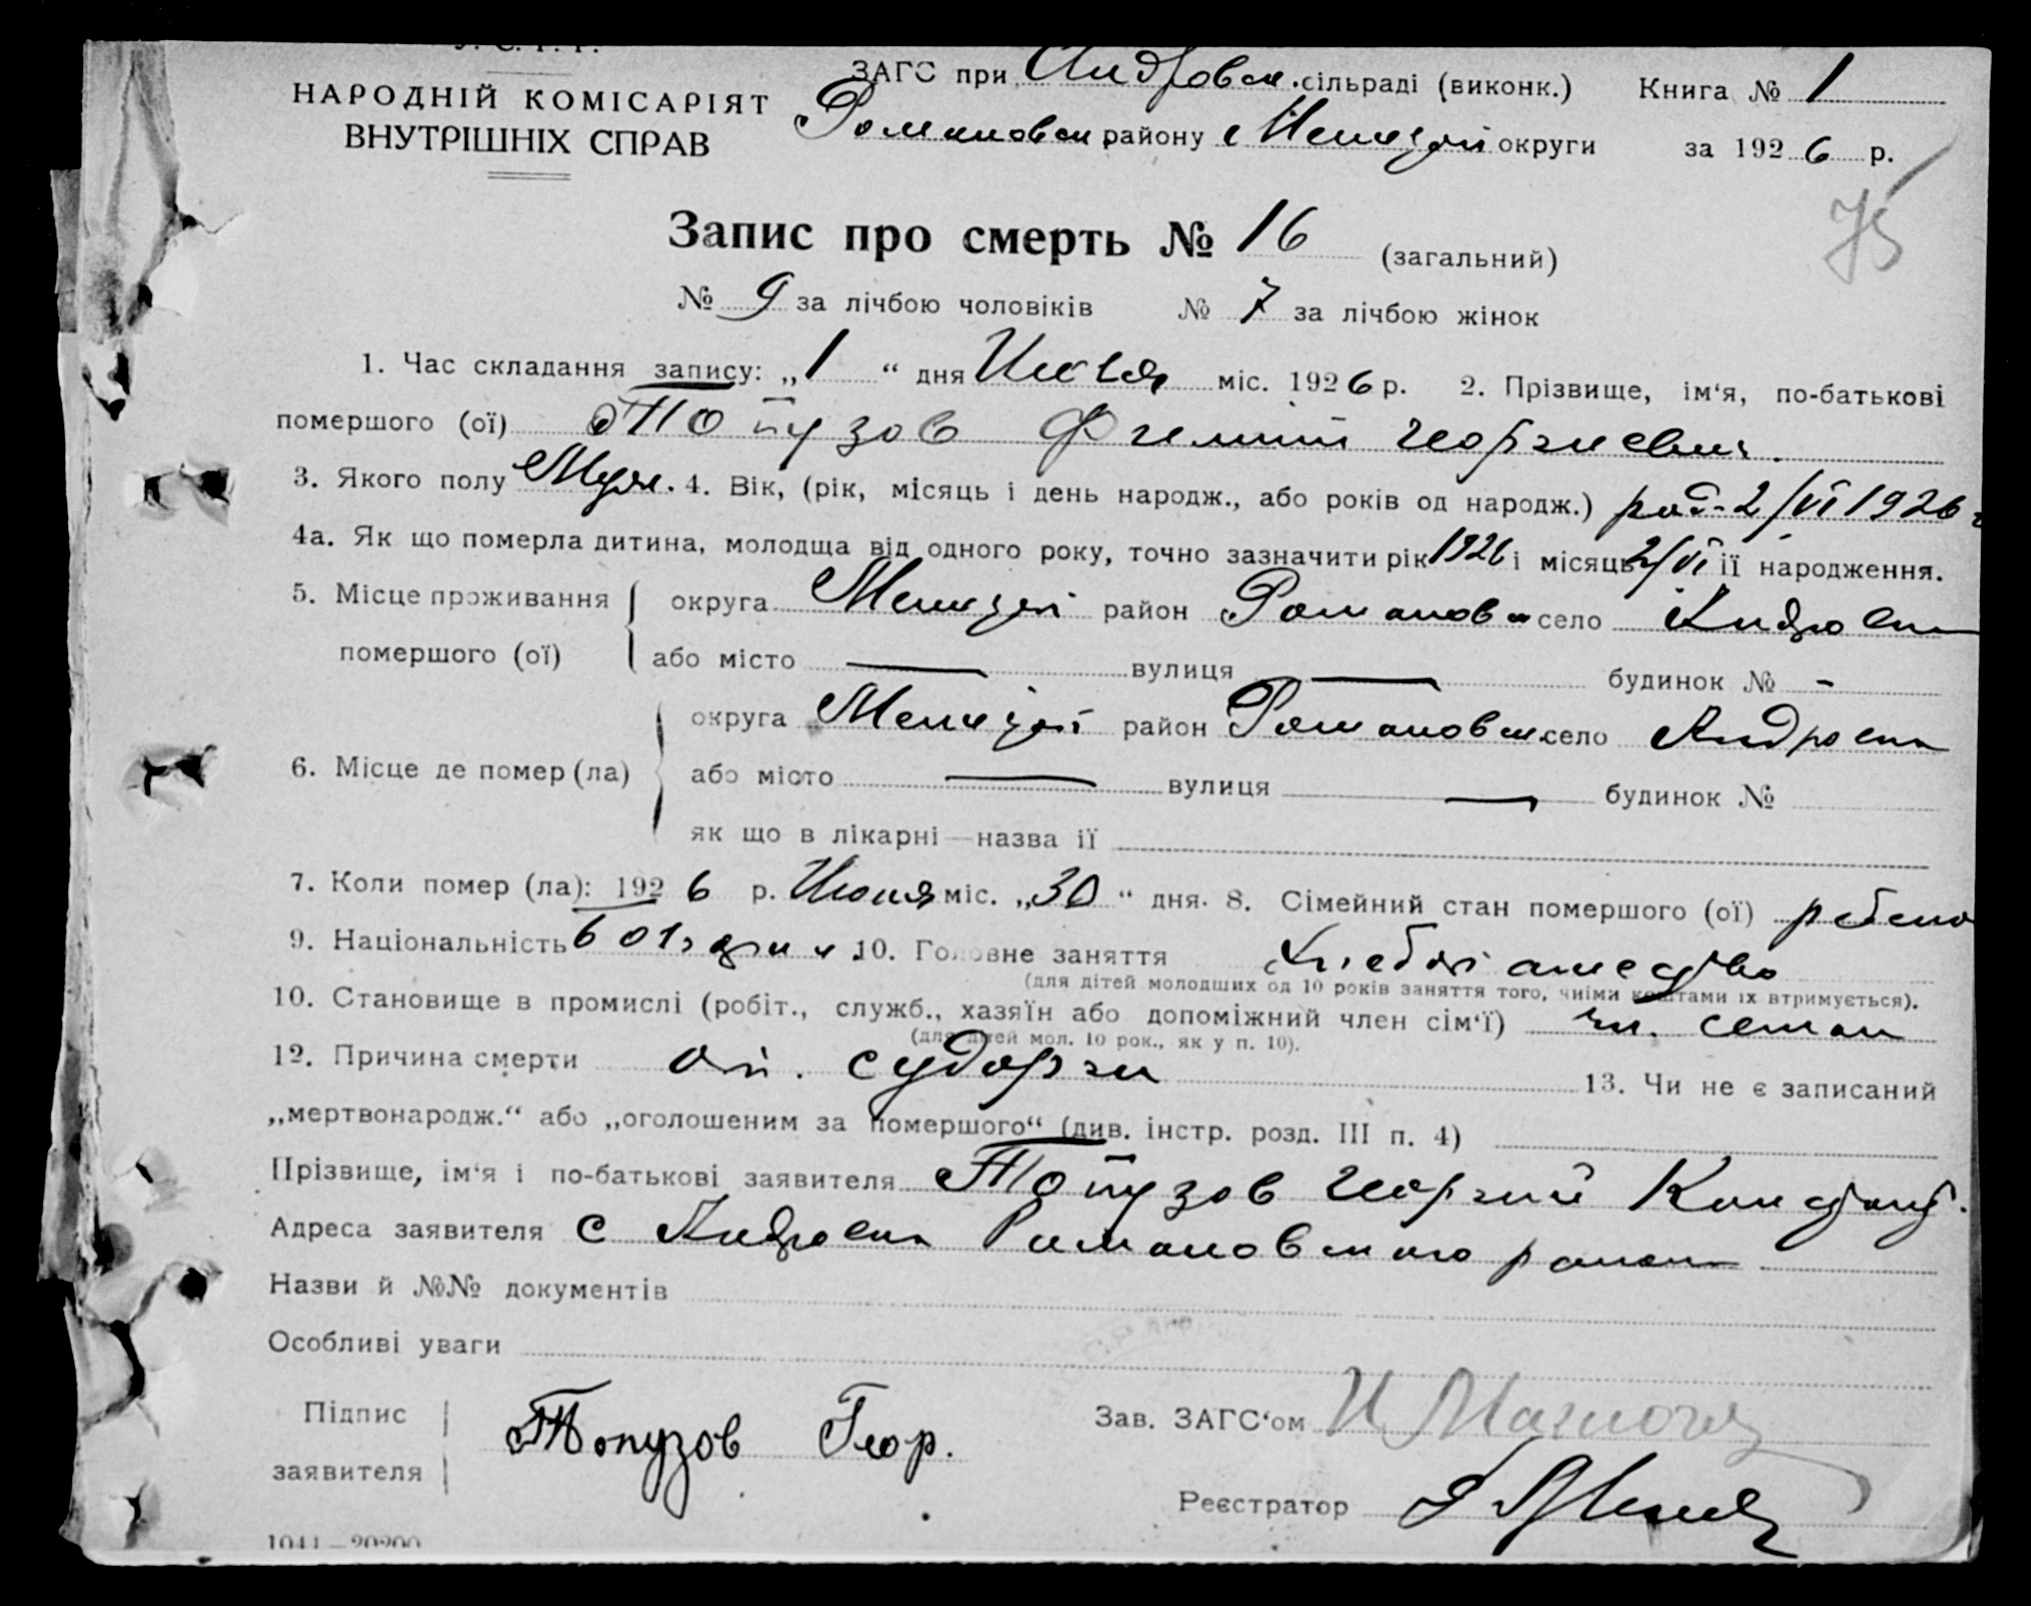 У. С. Р. Р.
НАРОДНІЙ КОМІСАРІЯТ
ВНУТРІШНІХ СПРАВ
ЗАГС при Андровск. сільраді (виконк.) Книга № 1
Романовск району Мелитоп округи за 1926 р.
75
Запис про смерть № 16 (загальний)
№ 9 за лічбою чоловіків № 7 за лічбою жінок
1. Час складання запису: „1“ дня Июля міс. 1926 р. 2. Прізвище, ім‘я, по-батькові
помершого (ої) Топузов Георгиевич.
3. Якого полу Муж. 4. Вік, (рік, місяць і день народж., або років од народж.) род. 2/VI 1926 г
4а. Як що померла дитина, молодща від одного року, точно зазначити рік 1926 і місяць 2/VI її народження.
5. Місце проживання округа район Романовск село Андровка
помершого (ої) або місто — вулиця — будинок № -
округа район Романовск село Андровка
6. Місце де помер (ла) або місто — вулиця — будинок №
як що в лікарні—назва ії
7. Коли помер (ла): 1926 р. Июня міс. „30“ дня. 8. Сімейний стан помершого (ої) ребено
9. Національність 10. Головне заняття Хлебопашество
(для дітей молодших од 10 років заняття того, чиїми коштами їх втримується).
10. Становище в промислі (робіт., служб., хазяїн або допоміжний член сім‘ї) чл. семьи
(для дітей мол. 10 рок., як у п. 10).
12. Причина смерти от. судорги 13. Чи не є записаний
„мертвонародж.“ або „оголошеним за помершого“ (див. інстр. розд. III п. 4)
Прізвище, ім‘я і по-батькові заявителя Топузов Георгий Констант.
Адреса заявителя с Андровка Романовского района
Назви й №№ документів
Особливі уваги
Підпис
заявителя Топузов Геор.
Зав. ЗАГС‘ом
Реєстратор
1041—20200